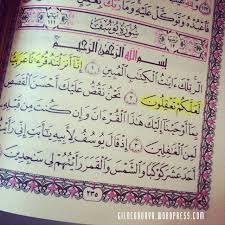 فَاعْبُدْهُ وَتَوَكَّلْ عَلَيْهِ وَمَا رَبُّكَ
سُورَةُ يُوسُفَ
بِسْمِ اللَّهِ الرَّحْمَٰنِ الرَّحِيمِ
الٓر تِلْكَ ءَايَٰتُ الْكِتَٰبِ الْمُبِينِ ١ إِنَّآ أَنزَلْنَٰهُ قُرْءَٰنًا عَرَبِيًّا
لَّعَلَّكُمْ تَعْقِلُونَ ٢ نَحْنُ نَقُصُّ عَلَيْكَ أَحْسَنَ الْقَصَصِ
بِمَآ أَوْحَيْنَآ إِلَيْكَ هَٰذَا الْقُرْءَانَ وَإِن كُنتَ مِن قَبْلِهِ
لَمِنَ الْغَٰفِلِينَ ٣ إِذْ قَالَ يُوسُفُ لِأَبِيهِ يَٰٓأَبَتِ إِنِّي رَأَيْتُ
أَحَدَ عَشَرَ كَوْكَبًا وَالشَّمْسَ وَالْقَمَرَ رَأَيْتُهُمْ لِي سَٰجِدِينَ
٢٣٥